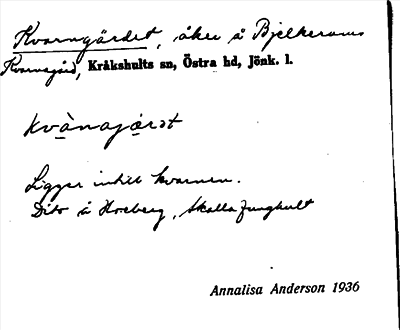 Kvarngärdet, åker å Bjelkerams
Kvarngård, Kråkshults sn, Östra hd, Jönk. l.
kvànajæ̀rət
Ligger intill kvarnen.
Dito å Hoeberg, Skallaljunghult
Annalisa Anderson 1936